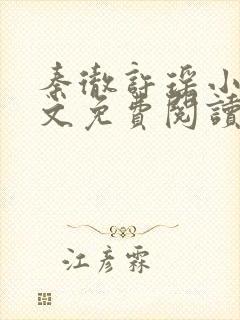 秦徹許瑤小
文免費閱讀
江彥霖